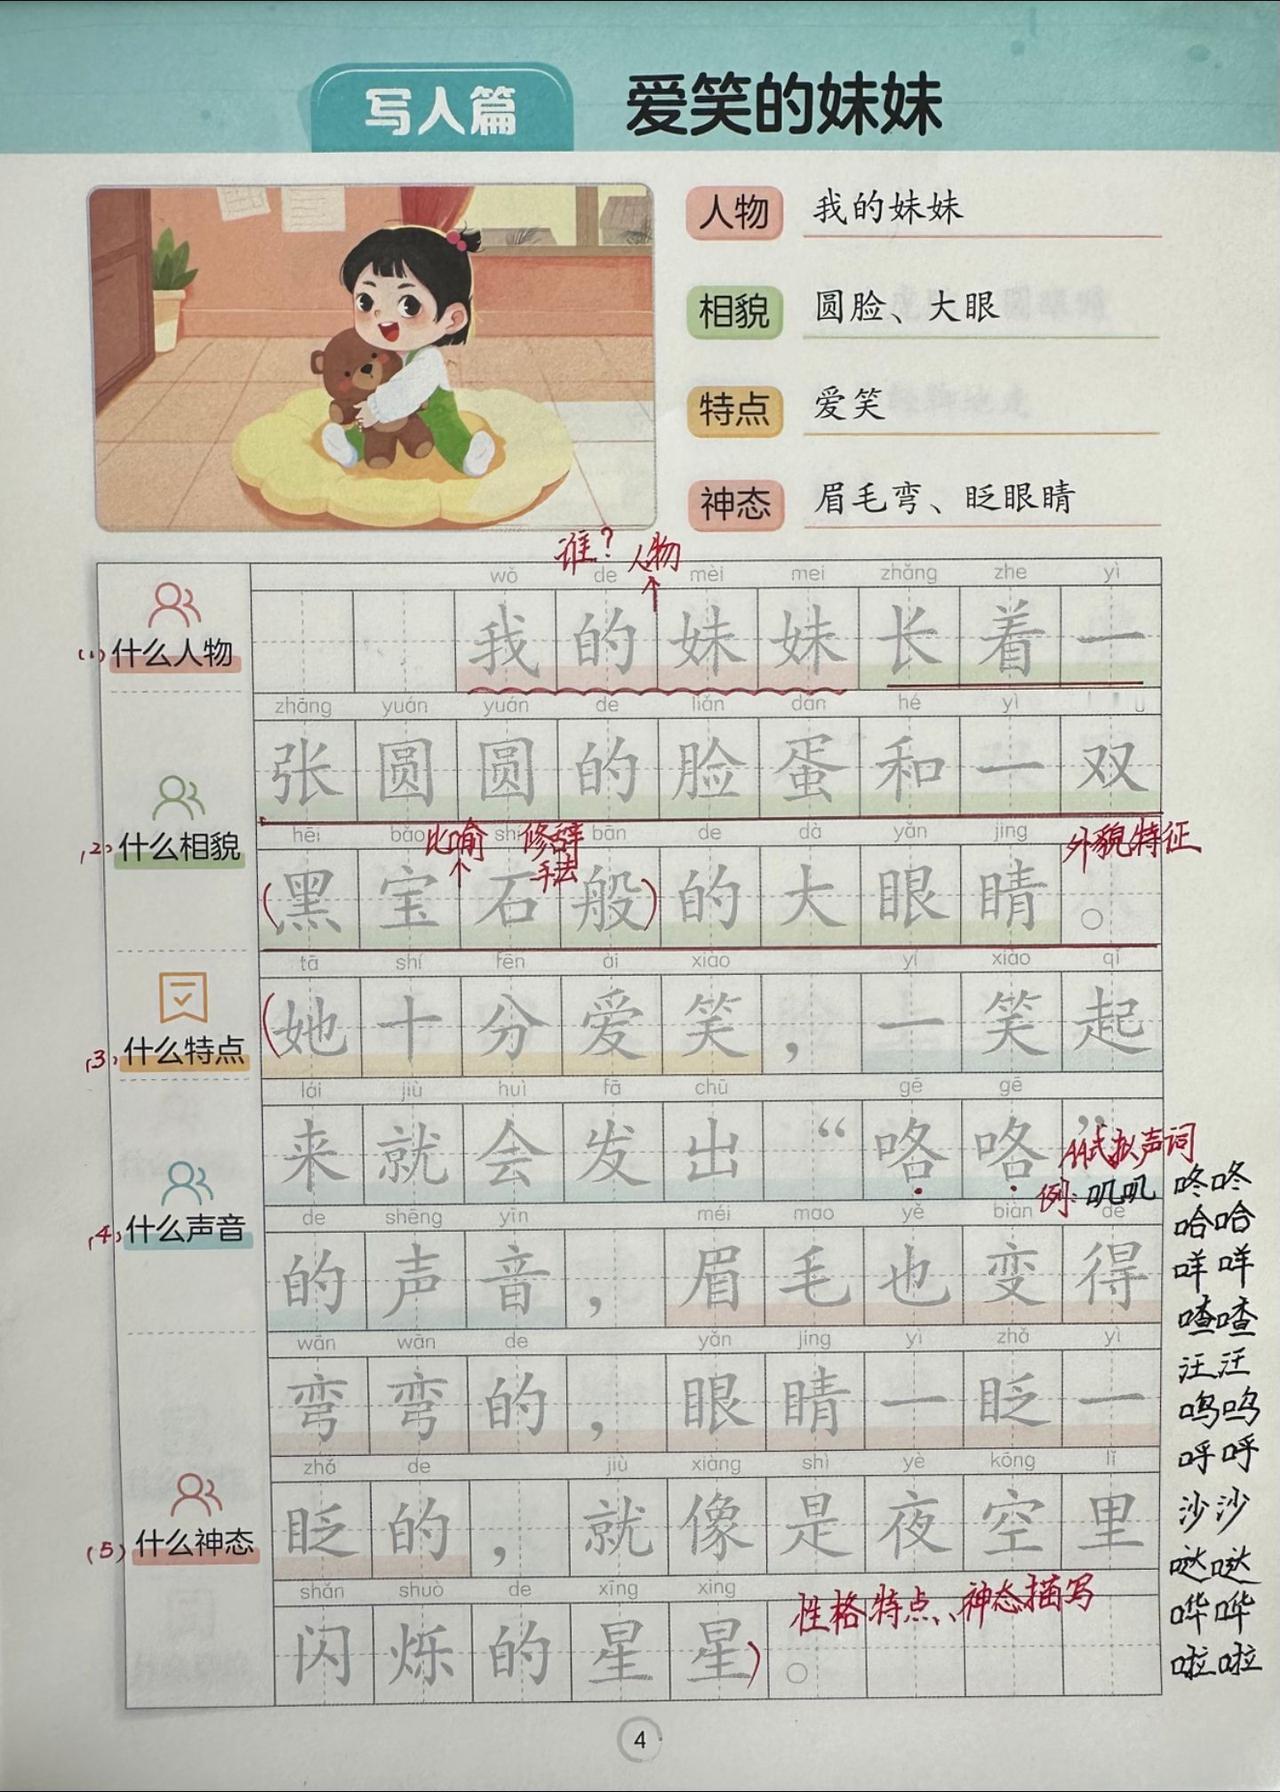 写人篇 爱笑的妹妹
人物 我的妹妹
相貌 圆脸、大眼
特点 爱笑
神态 眉毛弯、眨眼睛
谁? 人物
wǒ de mèi mei zhǎng zhe yì
(1) 什么人物 我的妹妹长着一
zhāng yuán yuán de liǎn dàn hé yì
张圆圆的脸蛋和一双
hēi bǎo shí bān de dà yǎn jing
比喻 修辞手法
外貌特征
(2) 什么相貌 (黑宝石般)的大眼睛。
tā shí fēn ài xiào yí xiào qǐ
(3) 什么特点 (她十分爱笑，一笑起
lái jiù huì fā chū gē gē
来就会发出“咯咯”
AA式拟声词
例:叽叽
咚咚
哈哈
咩咩
喳喳
汪汪
呜呜
呼呼
沙沙
哒哒
哗哗
啦啦
(4) 什么声音
de shēng yīn méi mao yě biàn de
的声音，眉毛也变得
wān wān de yǎn jing yì zhǎ yì
弯弯的，眼睛一眨一
zhǎ de jiù xiàng shì yè kōng lǐ
(5) 什么神态 眨的，就像是夜空里
shǎn shuò de xīng xing
闪烁的星星)。
性格特点、神态描写
4